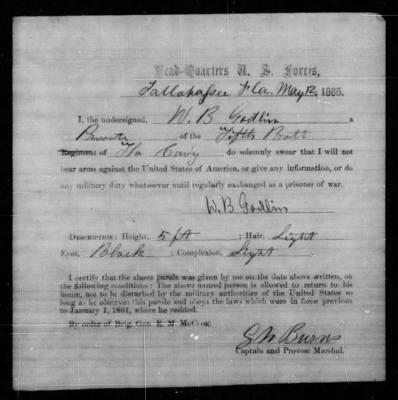 Head-Quarters U. S. Forces,
Tallahassee Fla. May 12, 1865.
I, the undersigned, W. B Godlin a
Private of the Fifth Batt
Regiment of Fla Cavy do solemnly swear that I will not
bear arms against the United States of America, or give any information, or do
any military duty whatsoever until regularly exchanged as a prisoner of war.
W. B Godlin
Description: Height, 5 ft ; Hair, Light
Eyes, Black ; Complexion, Light
I certify that the above parole was given by me on the date above written, on
the following conditions: The above named person is allowed to return to his
home, not to be disturbed by the military authorities of the United States so
long as he observes this parole and obeys the laws which were in force previous
to January 1, 1861, where he resided.
By order of Brig. Gen. E. M. McCook.
Burns
Captain and Provost Marshal.